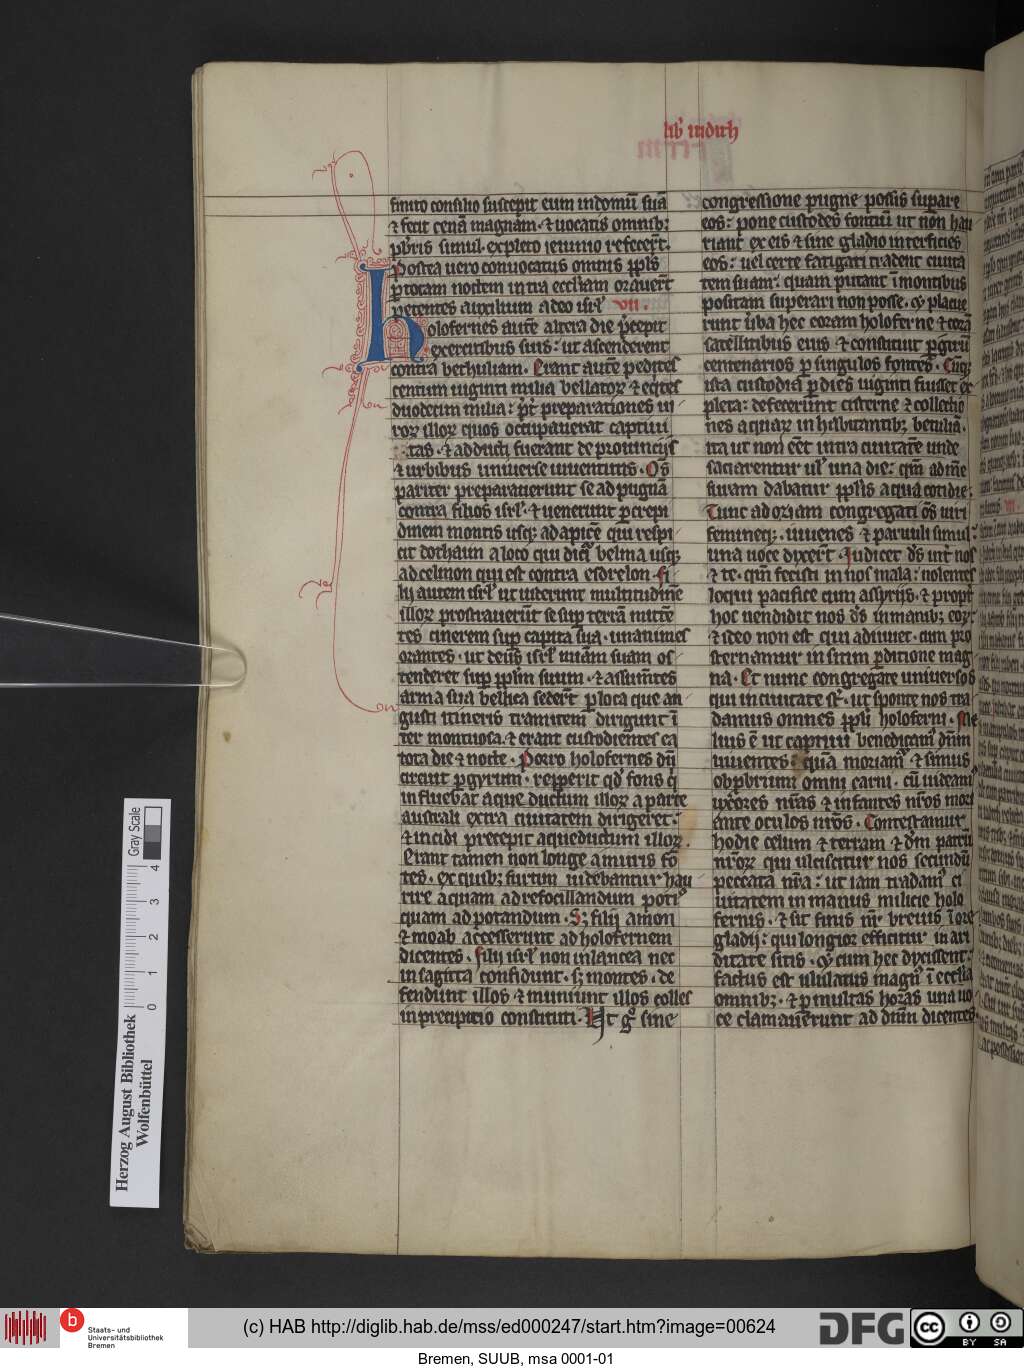 lib' iudith
finito consilio suscepit eum in domū suā
⁊ fecit cenā magnam · ⁊ uocatis omnib;
p̄bris simul · expleto ieiunio refecer̄t ·
Postea uero conuocatus omnis ppl's
p totam noctem intra eccl'iam orauer̄t
petentes auxilium a deo isrl' VII ·
holofernes autē altera die p̄cepit
exercitibus suis : ut ascenderent
contra bethuliam · Erant autē pedites
centum uiginti milia bellatoꝝ ⁊ eq̇tes
duodecim milia : p̄t' preparationes ui
roꝝ illoꝝ quos occupauerat captiui
tas · ⁊ adducti fuerant de prouincijs
⁊ urbibus uniuerse iuuentutis · Oēs
pariter preparauerunt se ad pugnā
contra filios isrl' · ⁊ uenerunt p crepi
dinem montis usq; ad apicē qui respi
cit dothaim a loco qui dicit' belma usq;
ad celmon qui est contra esdrelon · fi
lij autem isrl' ut uiderunt multitudinē
illoꝝ prostrauerūt se sup terrā mittē
tes cinerem sup capita sua · unanimes
orantes · ut deus isrl' m̄iam suam os
tenderet sup ppl'm suum · ⁊ assumētes
arma sua bellica seder̄t p loca que an
gusti itineris tramitem dirigunt ī
ter montuosa · ⁊ erant custodientes ea
tota die ⁊ nocte · Porro holofernes dū
circuit p gyrum · repperit qd' fons q'
influebat aque ductum illoꝝ a parte
australi extra ciuitatem dirigeret :
⁊ incidi precepit aqueductum illoꝝ ·
Erant tamen non longe a muris fō
tes · ex quib; furtim uidebantur hau
rire aquam ad refocillandum poti'
quam ad potandum · S; filij amon
⁊ moab accesserunt ad holofernem
dicentes · filij isrl' non in lancea nec
in sagitta confidunt · s; montes · de
fendunt illos ⁊ muniunt illos colles
in precipitio constituti · Ut g° sine
congressione pugne possis supare
eos : pone custodes fontiū ut non hau
riant ex eis ⁊ sine gladio interficies
eos : uel certe fatigati tradent ciuita
tem suam : quam putant ī montibus
positam superari non posse · Et placue
runt u'ba hec coram holoferne ⁊ corā
satellitibus eius · ⁊ constituit p girū
centenarios p singulos fontes · Cūq;
ista custodia p dies uiginti fuisset ex
pleta : defecerunt cisterne ⁊ collectio
nes aquaꝝ inhabitantib; betuliā ·
ita ut non eēt intra ciuitatē unde
saciarentur ul' una die : qm̄ ad m̄e
suram dabatur ppl'is aqua cotidie ;
Tunc ad oziam congregati oēs uiri
femineq; · iuuenes ⁊ paruuli simul :
una uoce dixer̄t · Iudicet ds' int' nos
⁊ te · qm̄ fecisti in nos mala : nolentes
loqui pacifice cum assyrijs · ⁊ propt'
hoc uendidit nos ds' in manib; eoꝝ ·
⁊ ideo non est qui adiuuet · cum pro
sternamur in sitim p ditione mag
na · Et nunc congregate uniuersos
qui in ciuitate st' · ut sponte nos tra
damus omnes ppl'i holoferni · Me
lius ē ut captiui benedicam' dn̄m
uiuentes : quā moriam' ⁊ simus
obp̄brium omni carni · cū uideam'
uxores nr̄as ⁊ infantes nr̄os mori
ante oculos nr̄os · Contestamur
hodie celum ⁊ terram ⁊ dm̄ patrū
nr̄oꝝ qui ulciscitur nos secundū
peccata nr̄a : ut iam tradam' ci
uitatem in manus milicie holo
fernis · ⁊ sit finis nr̄ breuis ī ore
gladij : qui longior efficitur in ari
ditate sitis · Et cum hec dixissent :
factus est ululatus magn' ī eccl'ia
omnib; · ⁊ p multas horas una uo
ce clamauerunt ad dn̄m dicentes ·
Herzog August Bibliothek
Wolfenbüttel
Gray Scale
0 1 2 3 4
b
Staats- und
Universitätsbibliothek
Bremen
(c) HAB http://diglib.hab.de/mss/ed000247/start.htm?image=00624
DFG
cc
BY SA
Bremen, SUUB, msa 0001-01